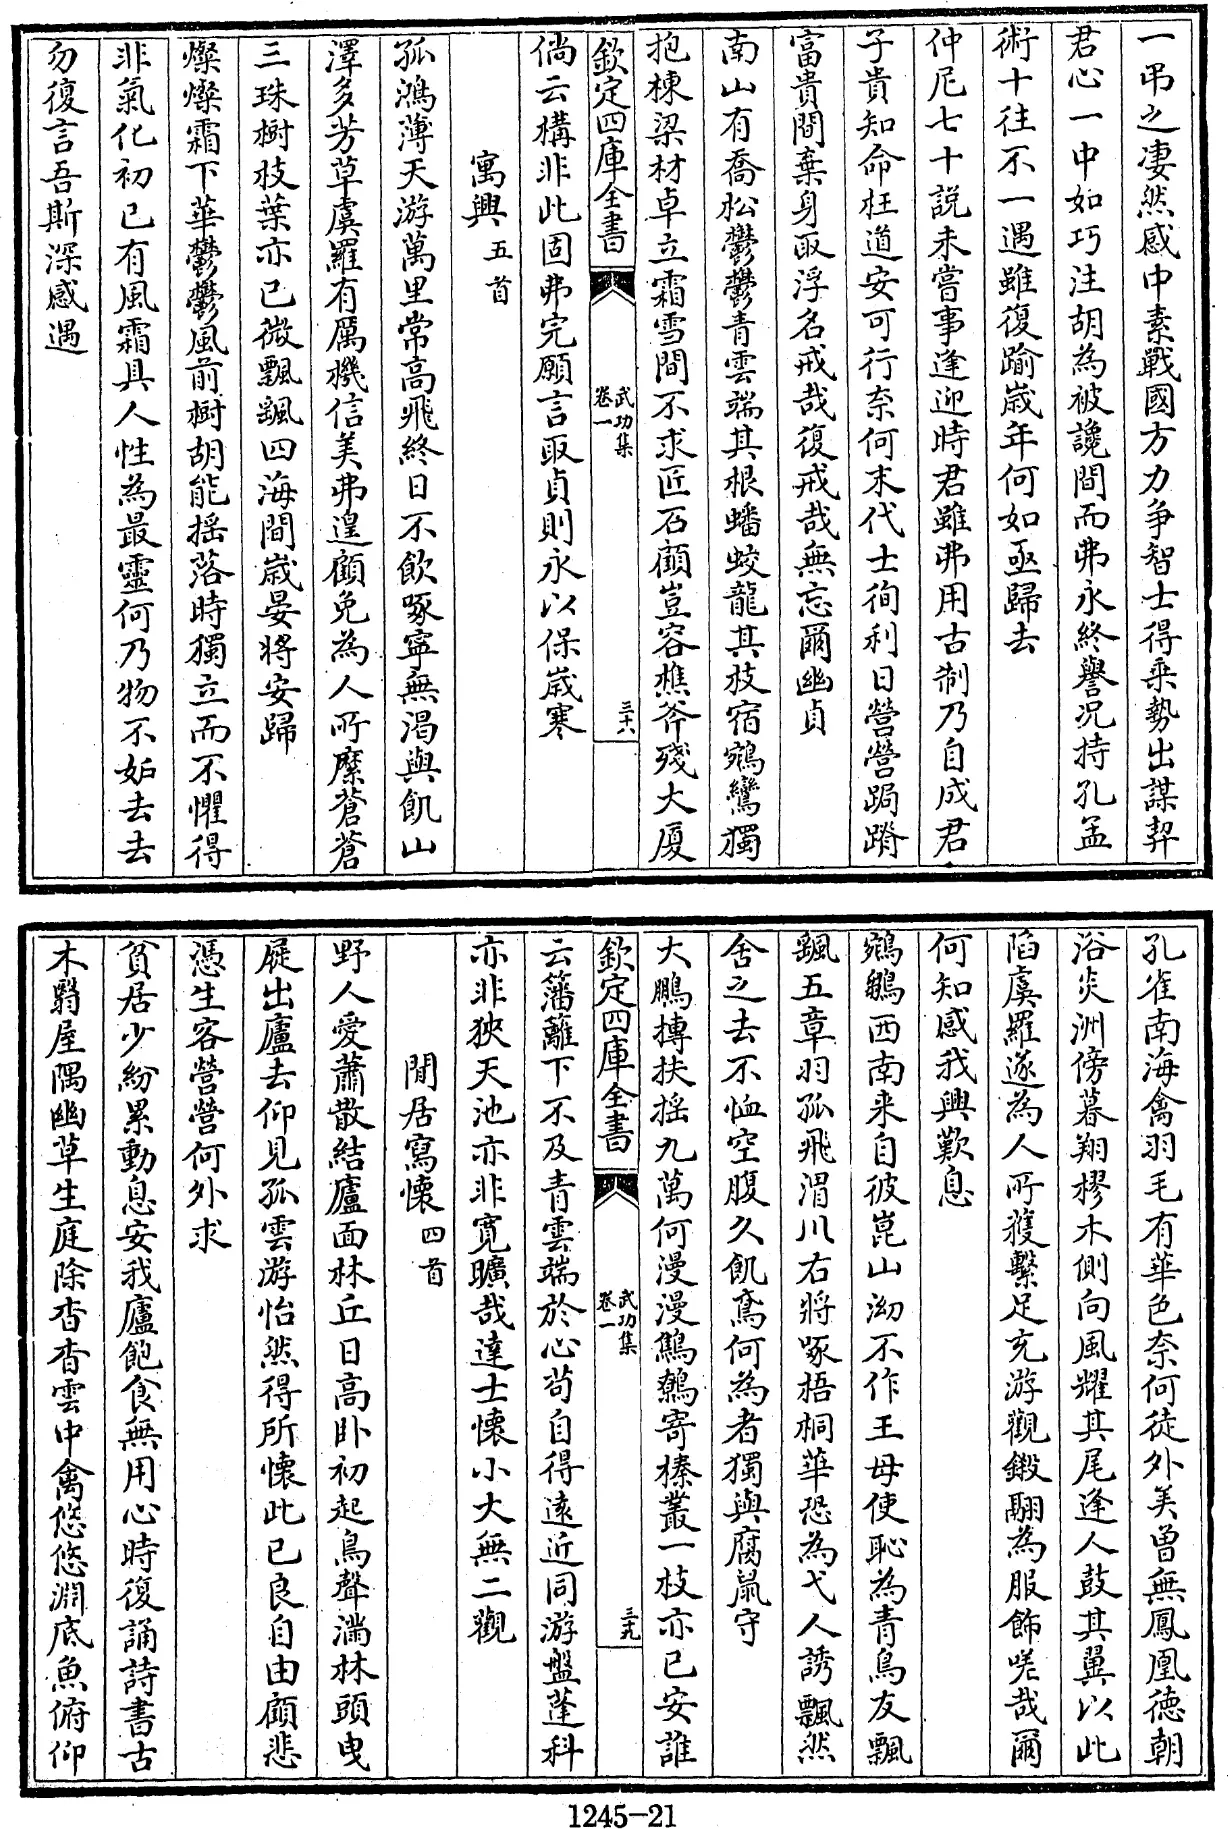 一弔之淒然感中素戰國方力爭智士得乗勢出謀契
君心一中如巧注胡為被讒間而弗永終譽况持孔孟
術十往不一遇雖復踰嵗年何如亟歸去
仲尼七十説未嘗事逢迎時君雖弗用古制乃自成君
子貴知命枉道安可行奈何末代士徇利日營營跼蹐
富貴間棄身取浮名戒哉復戒哉無忘爾幽貞
南山有喬松鬱鬱青雲端其根蟠蛟龍其枝宿鵷鸞獨
抱棟梁材卓立霜雪間不求匠石顧豈容樵斧殘大厦
欽定四庫全書
武功集
卷一
三十八
倘云構非此固弗完願言取貞則永以保嵗寒
寓興五首
孤鴻薄天游萬里常高飛終日不飲啄寧無渴與飢山
澤多芳草虞羅有厲機信美弗遑顧免為人所縻蒼蒼
三珠樹枝葉亦已微飄颻四海間嵗晏將安歸
燦燦霜下華鬱鬱風前樹胡能揺落時獨立而不懼得
非氣化初已有風霜具人性為最靈何乃物不如去去
勿復言吾斯深感遇
孔雀南海禽羽毛有華色奈何徒外美曽無鳳凰徳朝
浴炎洲傍暮翔樛木側向風耀其尾逢人鼓其翼以此
陷虞羅遂為人所獲繫足充游觀鎩翮為服飾嗟哉爾
何知感我興歎息
鵷鶵西南来自彼崑山泑不作王母使恥為青鳥友飄
颻五章羽孤飛渭川右將啄梧桐華恐為弋人誘飄然
舍之去不恤空腹久飢鳶何為者獨與腐鼠守
大鵬摶扶揺九萬何漫漫鷦鷯寄榛叢一枝亦已安誰
欽定四庫全書
武功集
卷一
三十九
云籓蘺下不及青雲端於心茍自得逺近同游盤蓬科
亦非狹天池亦非寛曠哉達士懷小大無二觀
閒居寫懷四首
野人愛蕭散結廬面林丘日高卧初起鳥聲滿林頭曵
屣出廬去仰見孤雲游怡然得所懷此已良自由顧悲
慿生客營營何外求
貧居少紛累動息安我廬飽食無用心時復誦詩書古
木翳屋隅幽草生庭除杳杳雲中禽悠悠淵底魚俯仰
1245-21